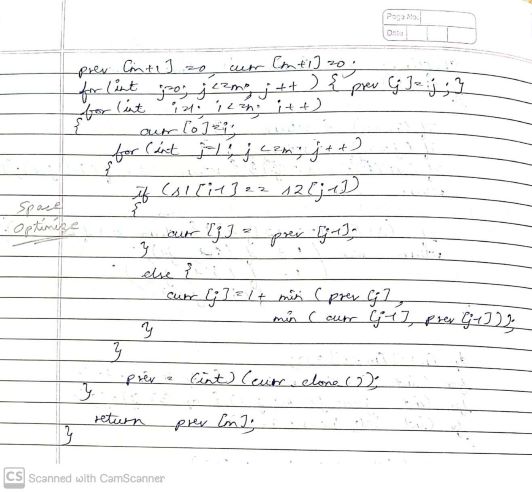 Page No.
Date
prev [m+1] =0, curr [m+1] =0;
for (int j=0; j<=m; j++) { prev [j]=j; }
for (int i=1; i<=n; i++)
{
curr [0]=i;
for (int j=1; j<=m; j++)
{
if (s1[i-1]== s2[j-1])
{
curr [j] = prev [j-1];
}
else {
curr [j]=1+ min (prev [j],
min (curr [j-1], prev [j-1]));
}
}
Space
Optimize
prev = (int) (curr.clone());
}
return prev [m];
}
CS Scanned with CamScanner